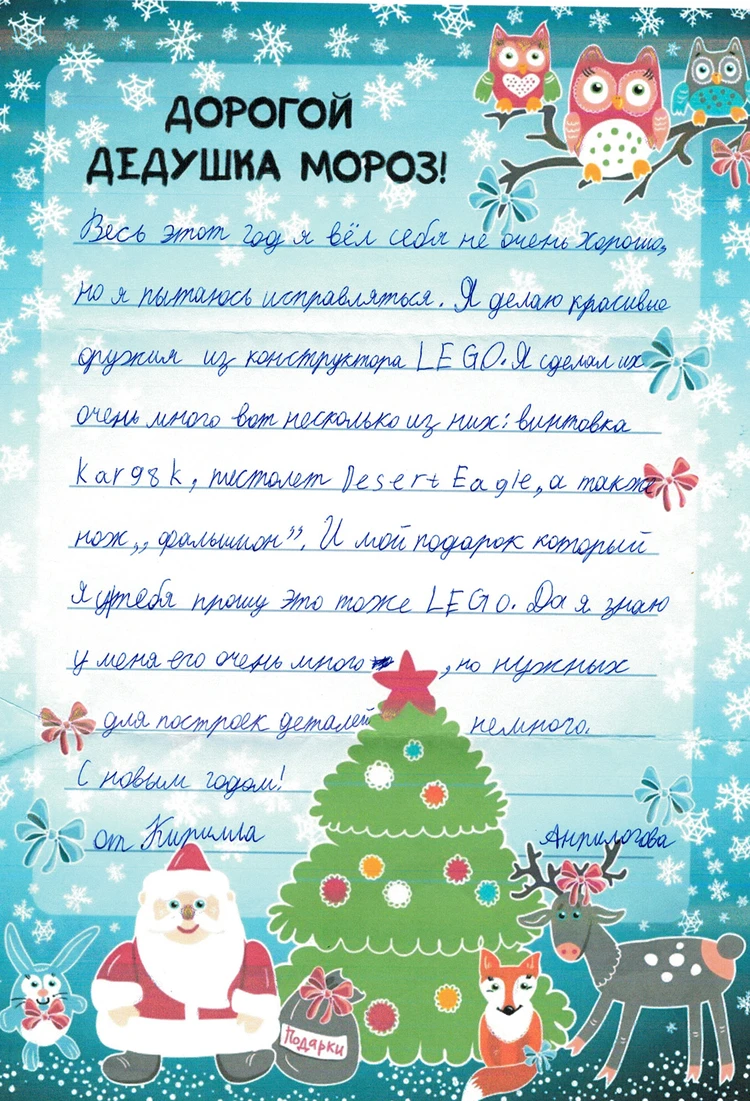 ДОРОГОЙ
ДЕДУШКА МОРОЗ!
Весь этот год я вёл себя не очень хорошо,
но я пытаюсь исправляться. Я делаю красивые
оружия из конструктора LEGO. Я сделал их
очень много вот несколько из них: винтовка
kar98k, пистолет Desert Eagle, а также
нож „фальшион”. И мой подарок который
я у тебя прошу это тоже LEGO. Да я знаю
у меня его очень много , но нужных
для построек деталей немного.
С новым годом!
от Кирилла
Подарки